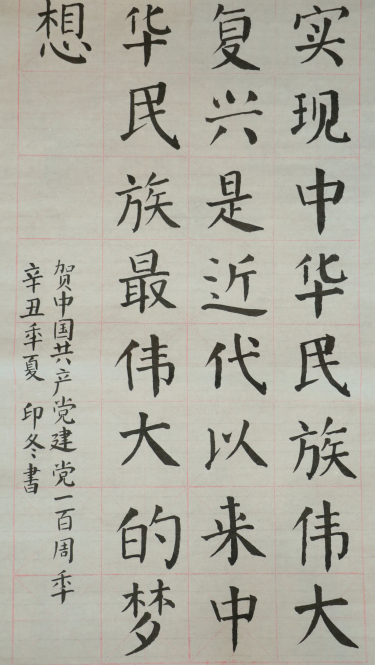 实现中华民族伟大
复兴是近代以来中
华民族最伟大的梦
想
贺中国共产党建党一百周年
辛丑年夏 印冬书